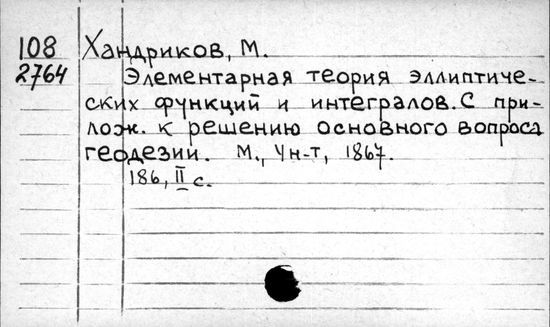 108 Хандриков, М.
2764 Элементарная теория эллиптиче-
ских функций и интегралов. С при-
лож. к решению основного вопроса
геодезии. М., Ун-т, 1867.
186, II с.